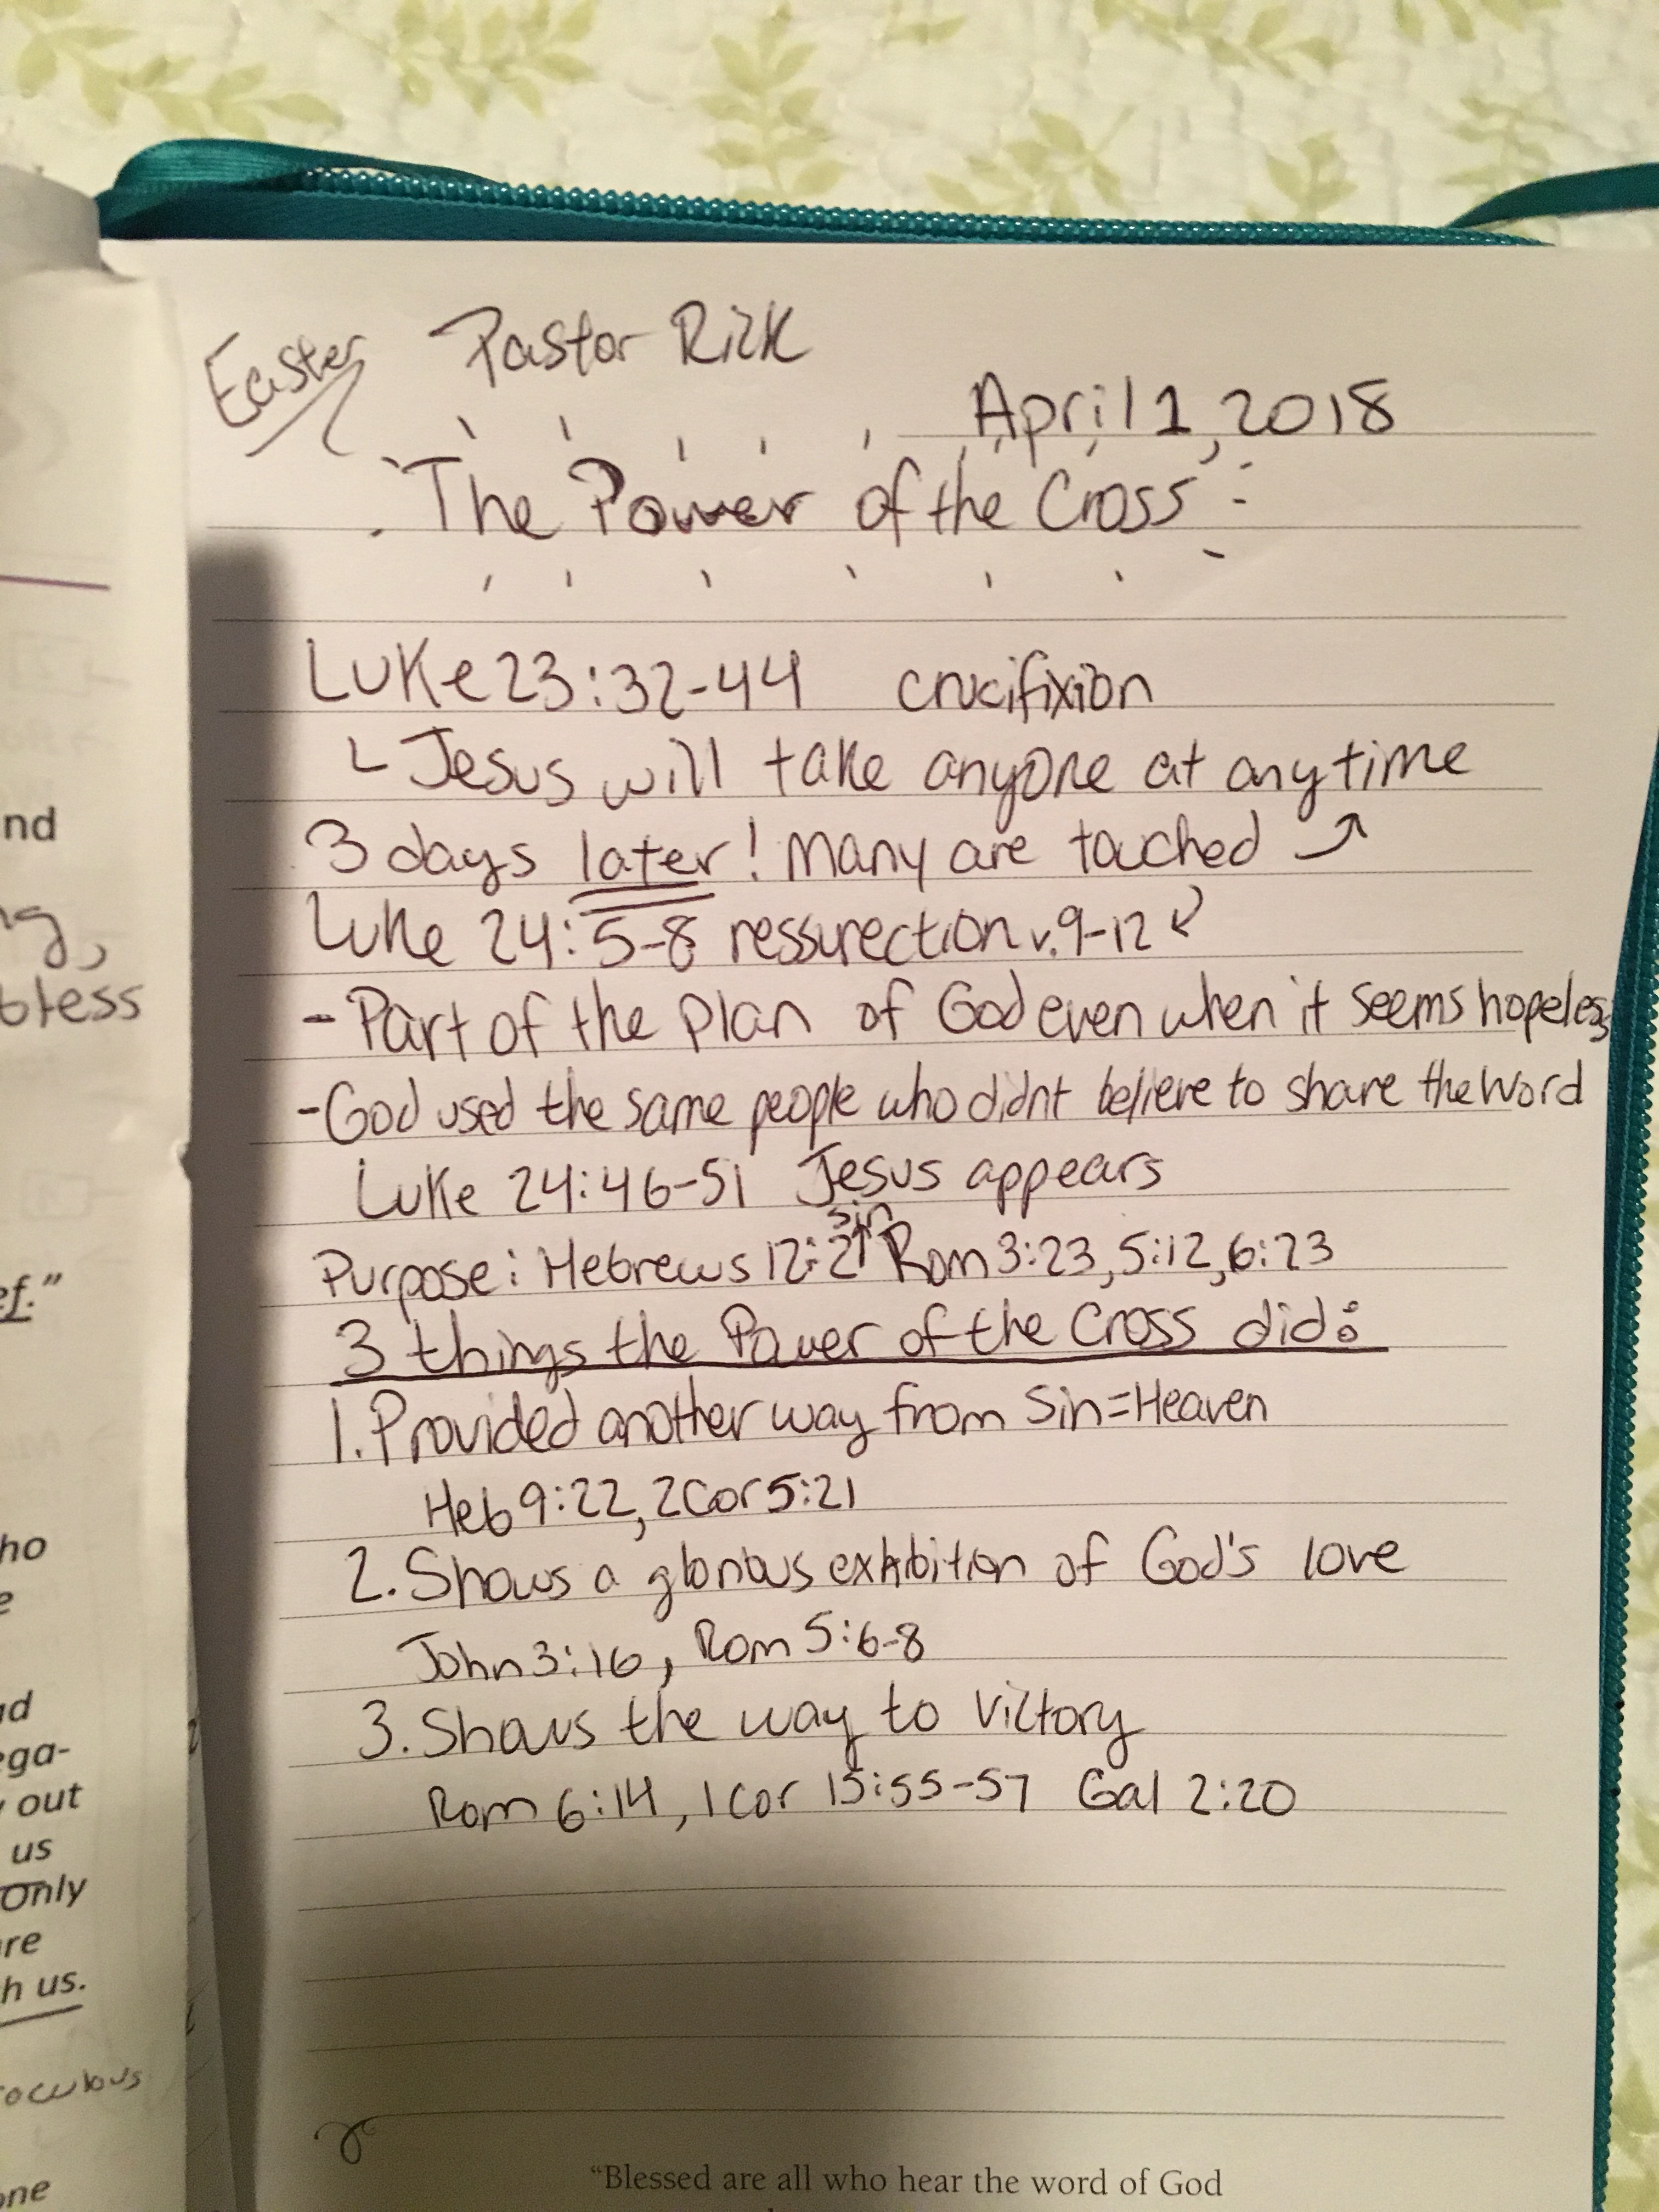 Easter Pastor Rick
April 1, 2018
The Power of the Cross
Luke 23:32-44 crucifixion
Jesus will take anyone at anytime
3 days later! Many are touched
Luke 24:5-8 ressurection v.9-12
- Part of the plan of God even when it seems hopeless
- God used the same people who didnt believe to share the Word
Luke 24:46-51 Jesus appears
sin
Purpose: Hebrews 12:2 ↑ Rom 3:23, 5:12, 6:23
3 things the Power of the Cross did:
1. Provided another way from Sin = Heaven
Heb 9:22, 2 Cor 5:21
2. Shows a glorious exhibition of God's love
John 3:16, Rom 5:6-8
3. Shows the way to victory
Rom 6:14, 1 Cor 15:55-57 Gal 2:20
"Blessed are all who hear the word of God
nd
bless
ef."
ho
e
ad
ega-
out
us
Only
re
h us.
one